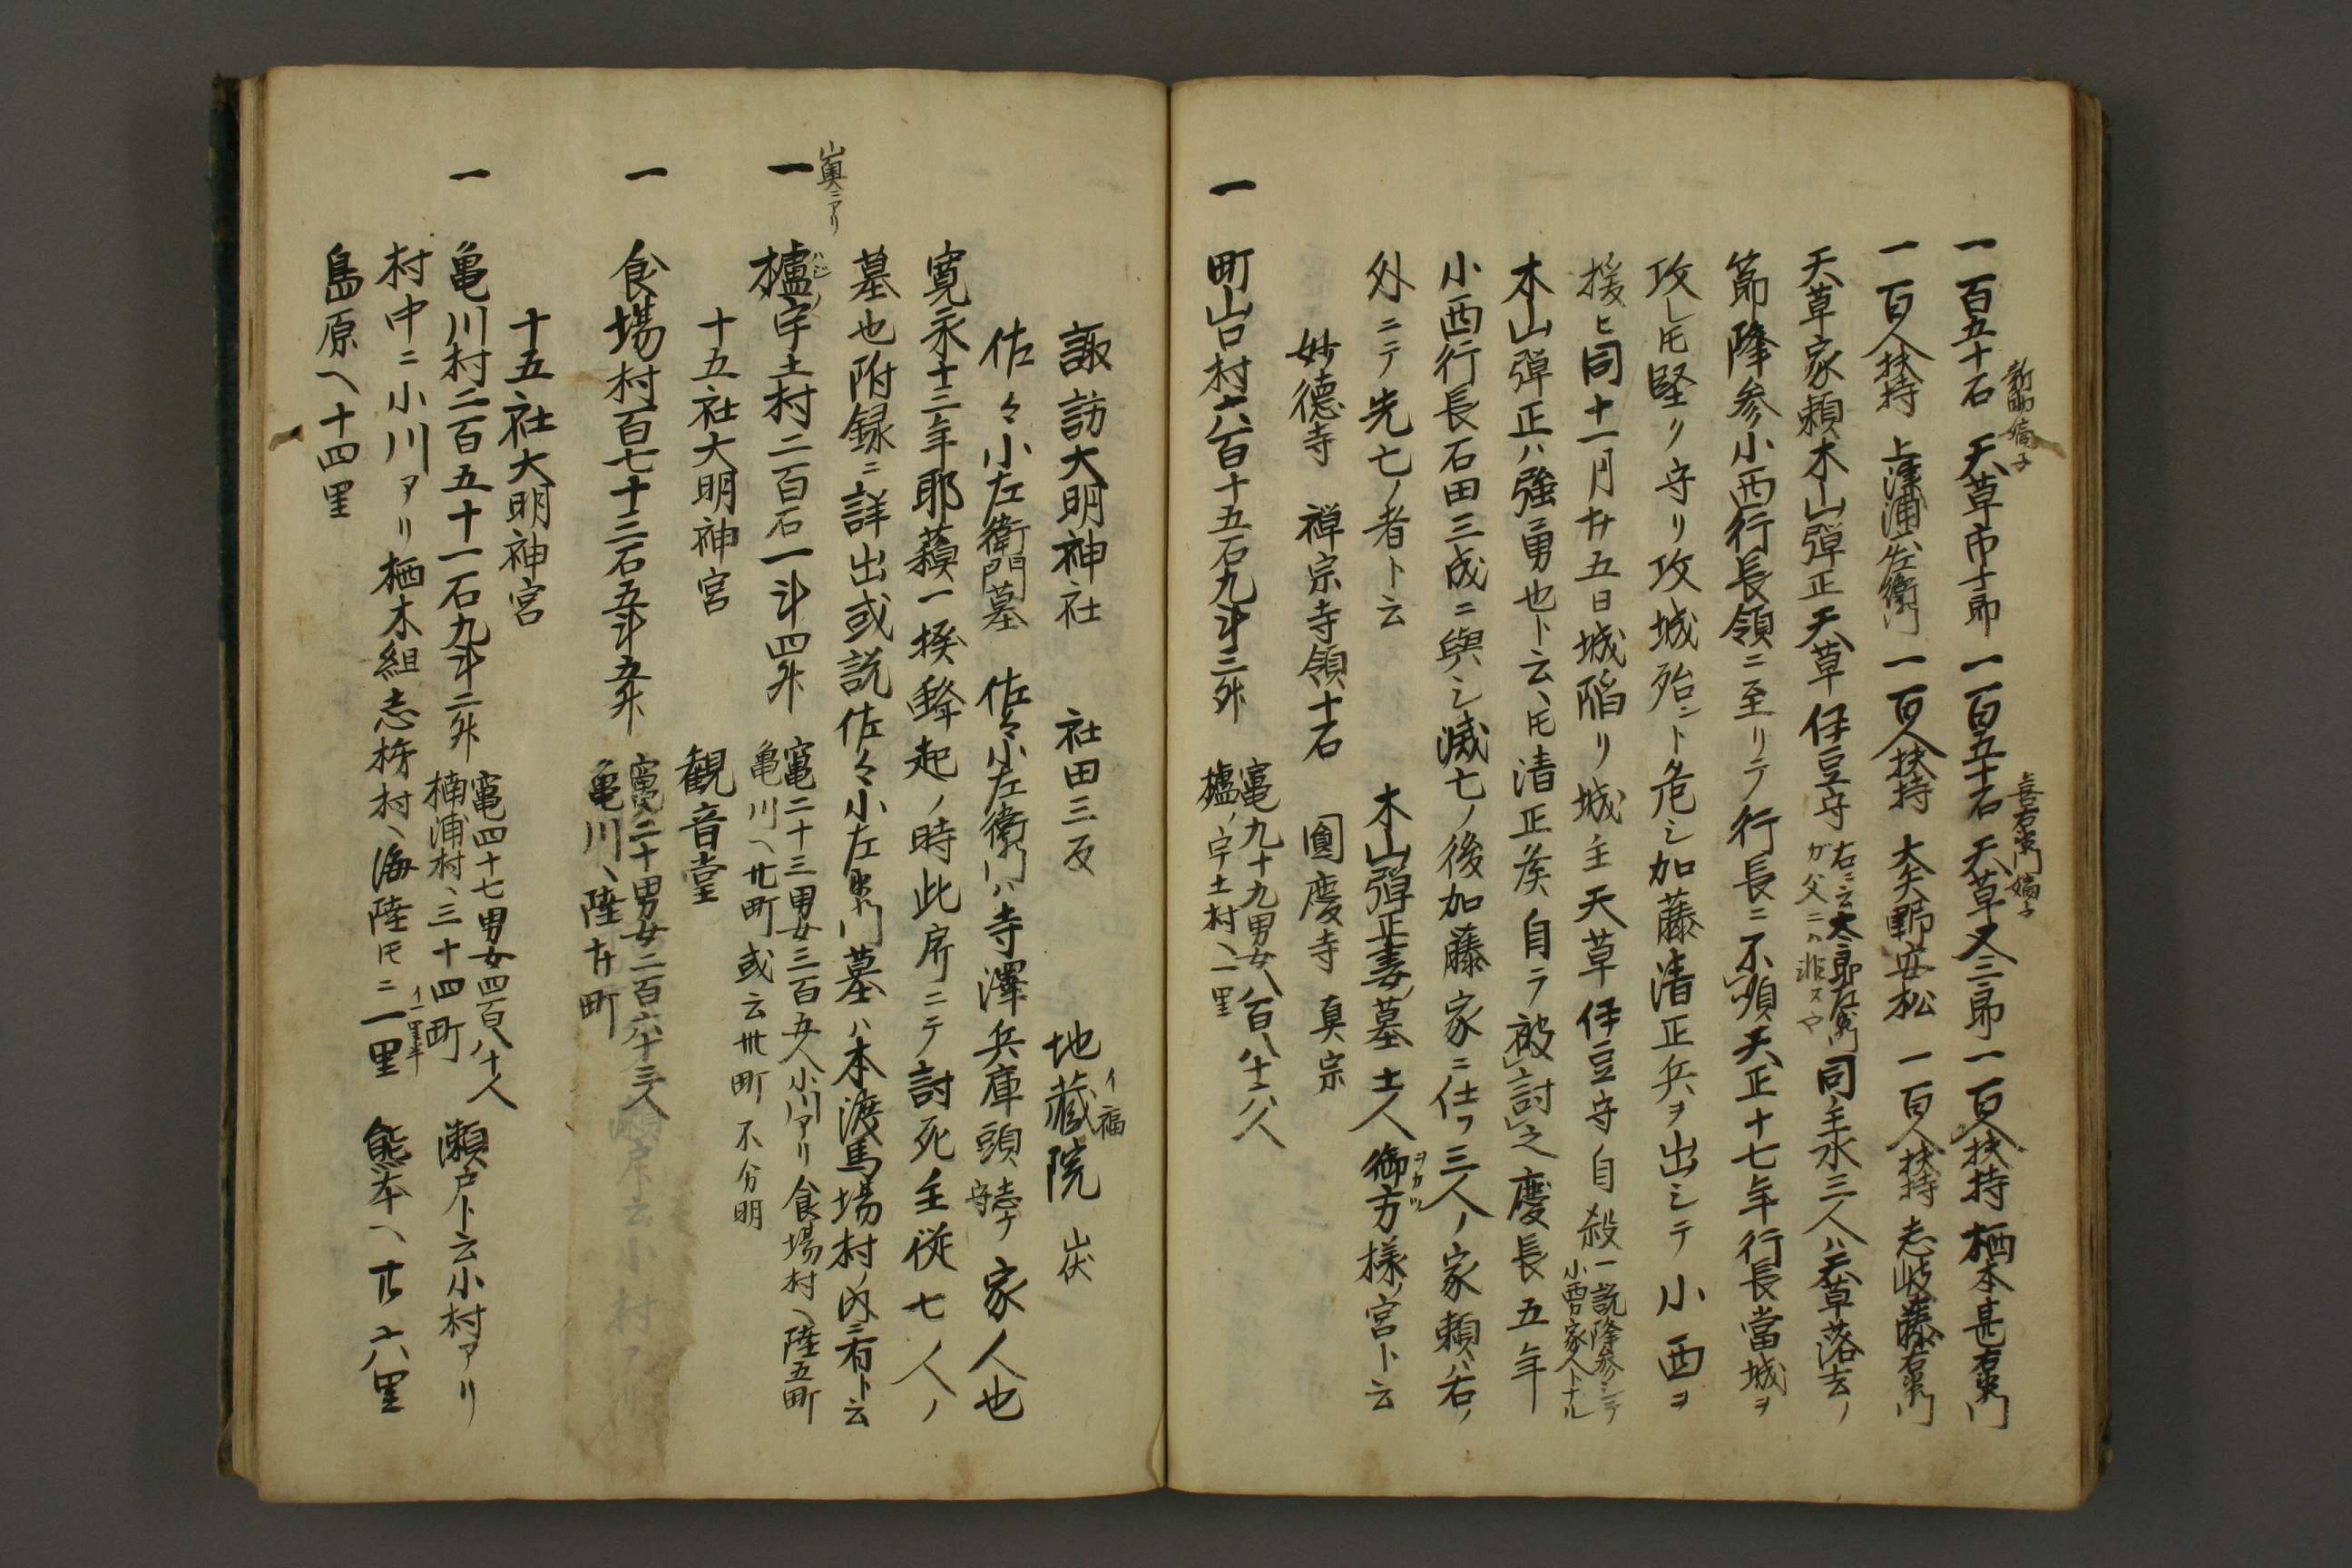 新助嫡子
喜右衛門嫡子
一百五十石 天草市十郎 一百五十石 天草又三郎 一百人扶持 栖本甚右衛門
一百人扶持 上津浦左衛門 一百人扶持 大矢野安松 一百人扶持 志岐藤右衛門
天草家頼木山彈正天草伊豆守右ニ云太郎左衛門ガ父ニハ非スヤ同主水三人ハ天草落去ノ
節降参小西行長領ニ至リテ行長ニ不順天正十七年行長當城ヲ
攻レ𪜈堅ク守リ攻城殆ント危シ加藤清正兵ヲ出シテ小西ヲ
援ヒ同十一月廿五日城陥リ城主天草伊豆守自殺一説降参シテ小西家人トナル
木山彈正ハ強勇也ト云𪜈清正矦自ラ被討之慶長五年
小西行長石田三成ニ與シ滅亡ノ後加藤家ニ仕フ三人ノ家頼ハ右ノ
外ニテ先亡ノ者ト云 木山彈正妻墓 土人御方様ノ宮ト云
ヲカツ
妙徳寺 禅宗寺領十石 圓慶寺 真宗
一 町山口村六百十五石九斗三舛 竃九十九男女八百八十八人
櫨ノ宇土村ヘ一里
諏訪大明神社 社田三反 地蔵院 山伏
イ福
佐々小左衛門墓 佐々小左衛門ハ寺澤兵庫頭志广守家人也
寛永十二年耶蘓一揆蜂起ノ時此所ニテ討死主従七人ノ
墓也附録ニ詳出或説佐々小左衛門墓ハ本渡馬場村ノ内ニ有ト云
山奥ニアリ
一 櫨宇土村二百石一斗四舛 竃二十三男女三百五人小川アリ食場村ヘ陸五町
ハシノ
亀川ヘ廿町或云卅町不分明
十五社大明神宮 観音堂
一 食場村百七十二石五斗五舛 竃二十男女二百六十三人
亀川ヘ陸廿町
十五社大明神宮
一 亀川村二百五十一石九斗二舛 竃四十七男女四百八十人 瀬戸ト云小村アリ
楠浦村ヘ三十四町
村中ニ小川アリ栖木組志柿村ヘ海陸𪜈ニ二里 熊本ヘ廿六里
イ一里半
島原ヘ十四里